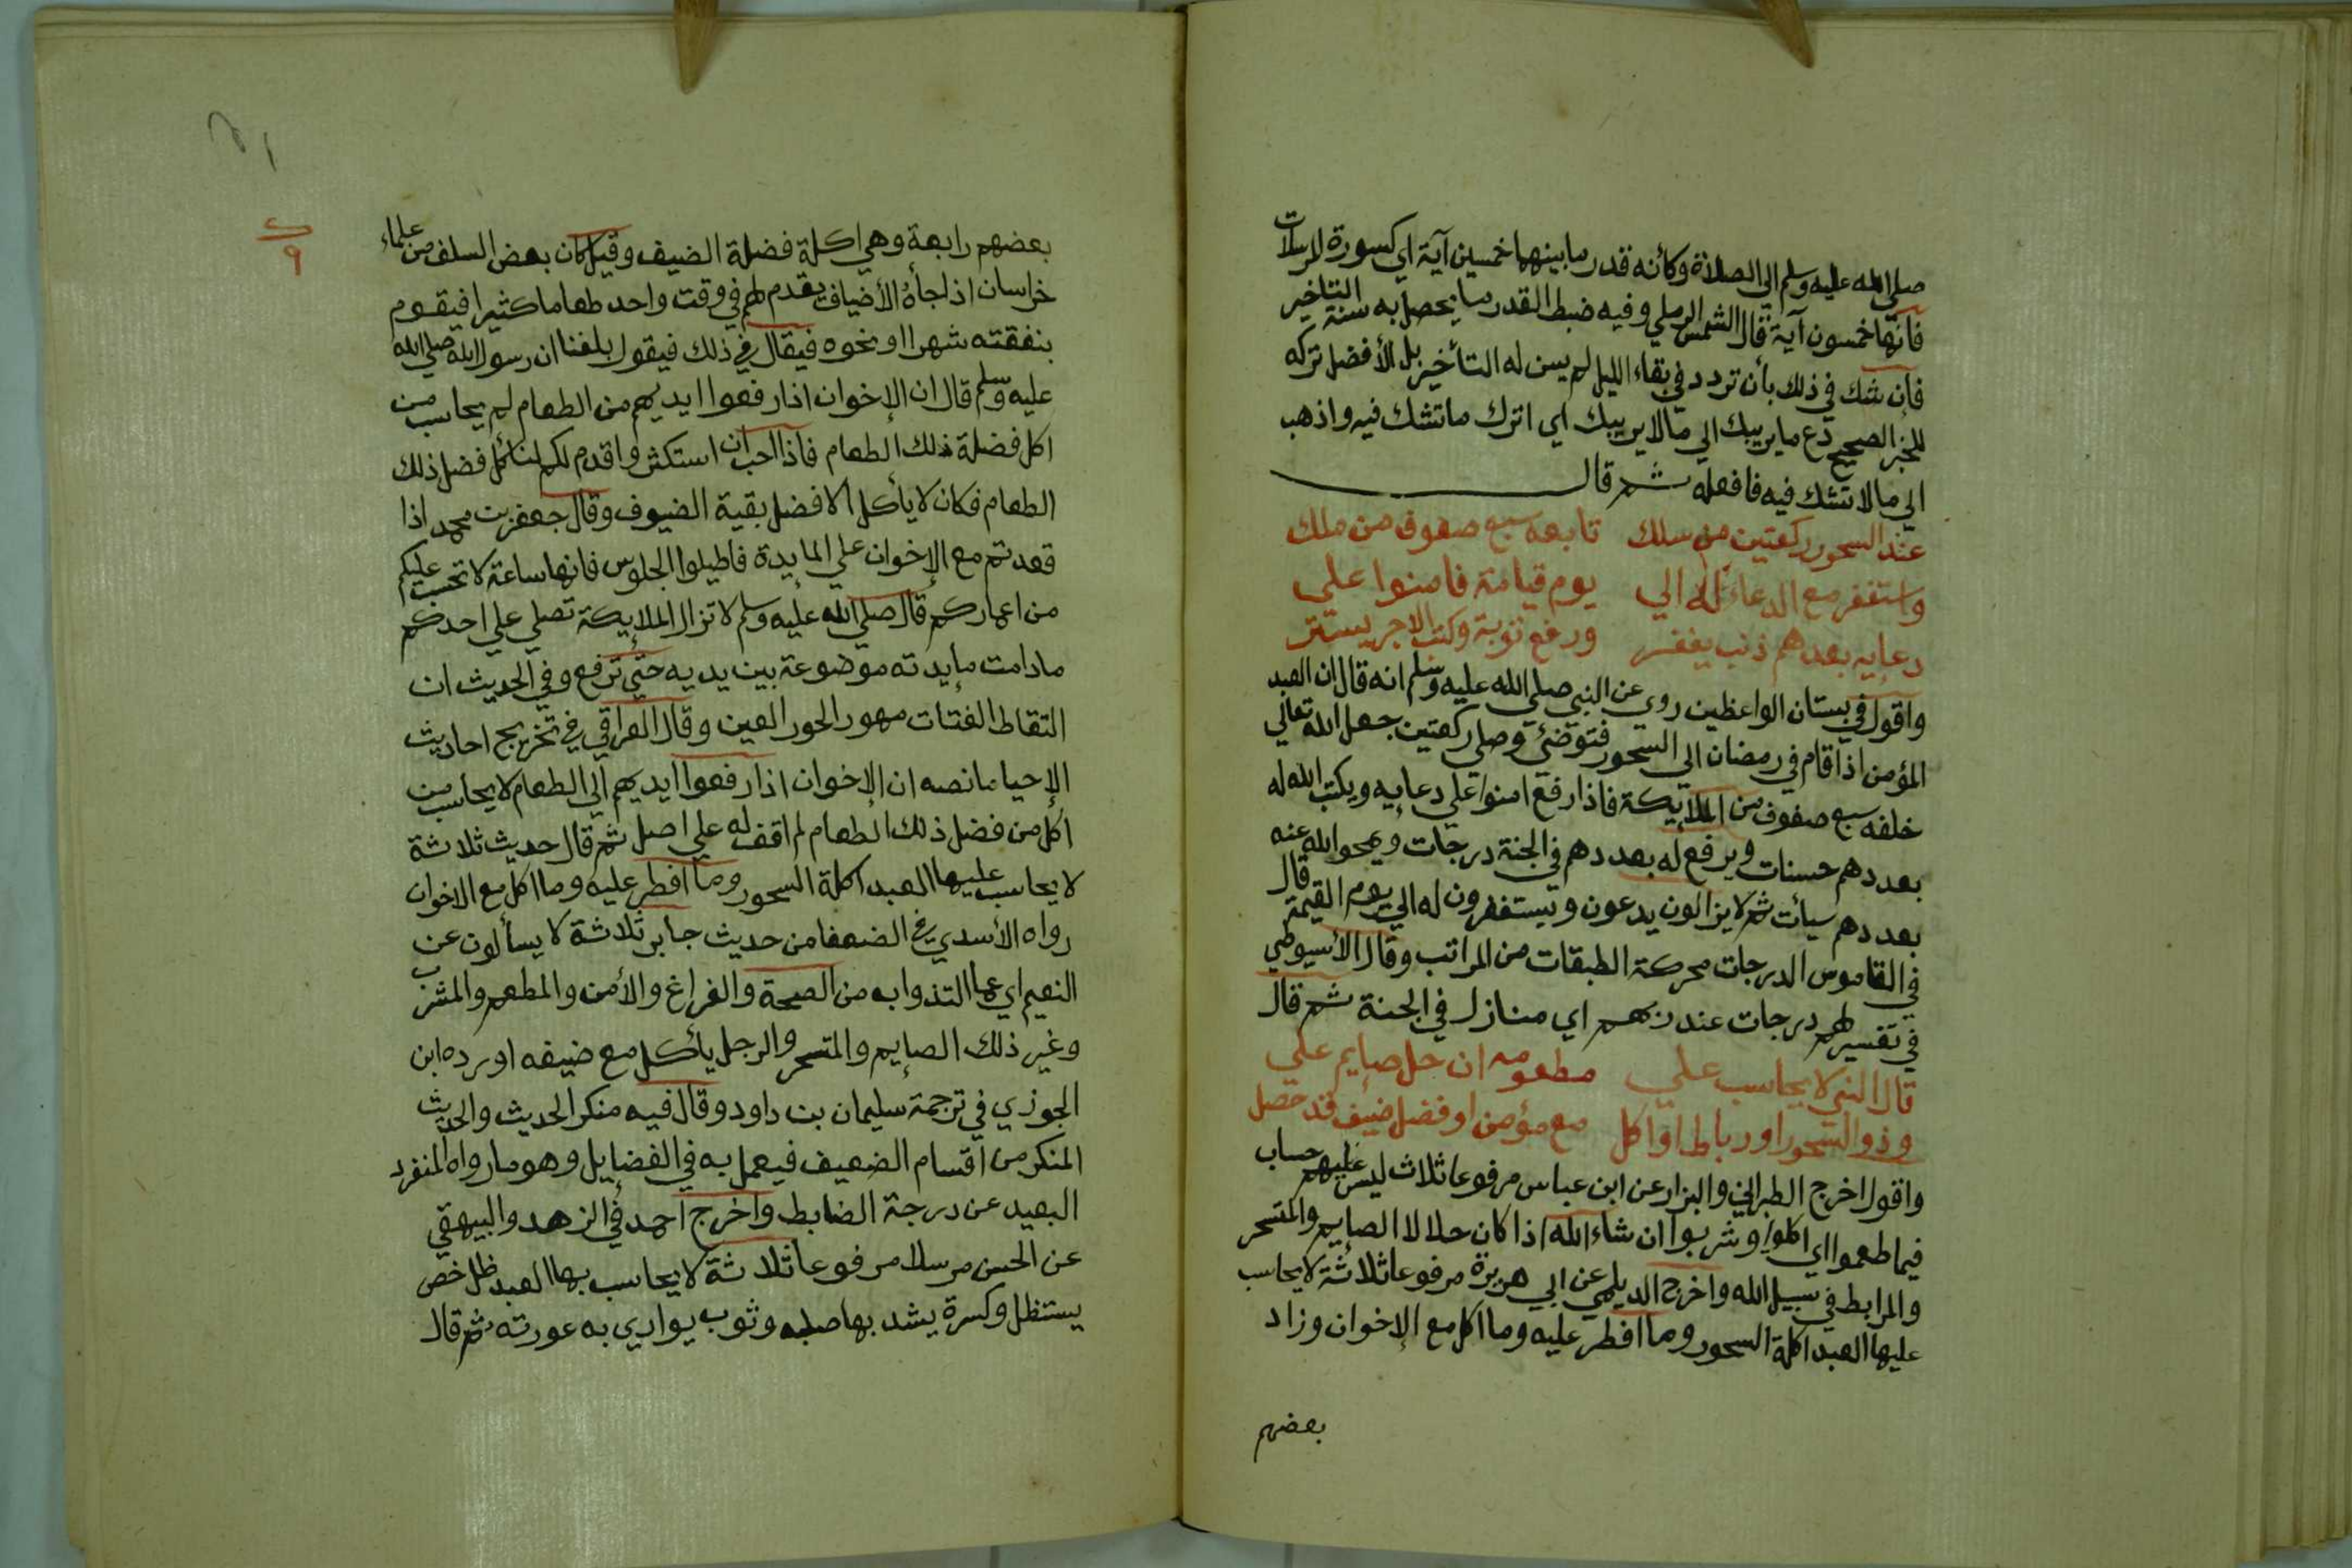 صلى الله عليه وسلم الي الصلاة وكأنه قدر ما بينهما خمسين آية اي كسورة المرسلات
فانها خمسون آية قال الشمس الرملي وفيه ضبط القدر ما يحصل به سنة التاخير
فإن شك في ذلك بأن تردد في بقاء الليل لم يسن له التأخير بل الأفضل تركه
للخبر الصحيح دع ما يريبك الي مالا يريبك اي اترك ما تشك فيه واذهب
الي ما لا تشك فيه فافعله ثم قال
عند السحور ركعتين من سلك تابعه سبع صفوف من ملك
واستغفر مع الدعاء له الي يوم قيامة فامنوا علي
دعايه بعدهم ذنب يغفر ورفع توبة وكتب الاجر يستتر
واقول في بستان الواعظين روي عن النبي صلى الله عليه وسلم انه قال ان العبد
المؤمن اذا قام في رمضان الي السحور فتوضئ وصلي ركعتين جعل الله تعالي
خلفه سبع صفوف من الملايكة فاذا رفع امنوا علي دعايه ويكتب الله له
بعددهم حسنات ويرفع له بعددهم في الجنة درجات ويمحو الله عنه
بعددهم سيأت ثم لا يزالون يدعون ويستغفرون له الي يوم القيمة قال
في القاموس الدرجات محركة الطبقات من المراتب وقال الأسيوطي
في تفسير لهم درجات عند ربهم اي منازل في الجنة ثم قال
قال النبي لا يحاسب علي مطعومه ان حل صايم علي
وذو السحور او رباط او اكل مع مؤمن او فضل ضيف قد حصل
واقول اخرج الطبراني والبزار عن ابن عباس مرفوعا ثلاث ليس عليهم حساب
فيما طعموا اي اكلوا وشربوا ان شاء الله اذا كان حلالا الصايم والمتسحر
والمرابط في سبيل الله واخرج الديلمي عن ابي هريرة مرفوعا ثلاثة لا يحاسب
عليها العبد اكلة السحور وما افطر عليه وما اكل مع الإخوان وزاد
بعضهم
٩
بعضهم رابعة وهي اكلة فضلة الضيف وقيل كان بعض السلف من علماء
خراسان اذا جأه الأضياف يقدم لهم في وقت واحد طعاما كثيرا فيقوم
بنفقته شهرا او نحوه فيقال في ذلك فيقول بلغنا ان رسول الله صلى الله
عليه وسلم قال ان الإخوان اذا رفعوا ايديهم من الطعام لم يحاسب من
اكل فضلة ذلك الطعام فاذا احب ان استكثر واقدم لكم لنأكل فضل ذلك
الطعام فكان لا يأكل الا فضل بقية الضيوف وقال جعفر بن محمد اذا
قعدتم مع الإخوان علي المايدة فاطيلوا الجلوس فانها ساعة لا تحسب عليكم
من اعماركم قال صلى الله عليه وسلم لا تزال الملايكة تصلي علي احدكم
ما دامت مايدته موضوعة بين يديه حتي ترفع وفي الحديث ان
التقاط الفتات مهور الحور العين وقال العراقي في تخريج احاديث
الإحيا ما نصه ان الإخوان اذا رفعوا ايديهم الي الطعام لا يحاسب من
اكل من فضل ذلك الطعام لم اقف له علي اصل ثم قال حديث ثلاثة
لا يحاسب عليها العبد اكلة السحور وما افطر عليه وما اكل مع الاخوان
رواه الأسدي في الضعفا من حديث جابر ثلاثة لا يسألون عن
النعيم اي عما التذوا به من الصحة والفراغ والأمن والمطعم والمشرب
وغير ذلك الصايم والمتسحر والرجل يأكل مع ضيفه اورده ابن
الجوزي في ترجمة سليمان بن داود وقال فيه منكر الحديث والحديث
المنكر من اقسام الضعيف فيعمل به في الفضايل وهو ما رواه المنفرد
البعيد عن درجة الضابط واخرج احمد في الزهد والبيهقي
عن الحسن مرسلا مرفوعا ثلاثة لا يحاسب بها العبد ظل خص
يستظل وكسرة يشد بها صلبه وثوب يواري به عورته ثم قال